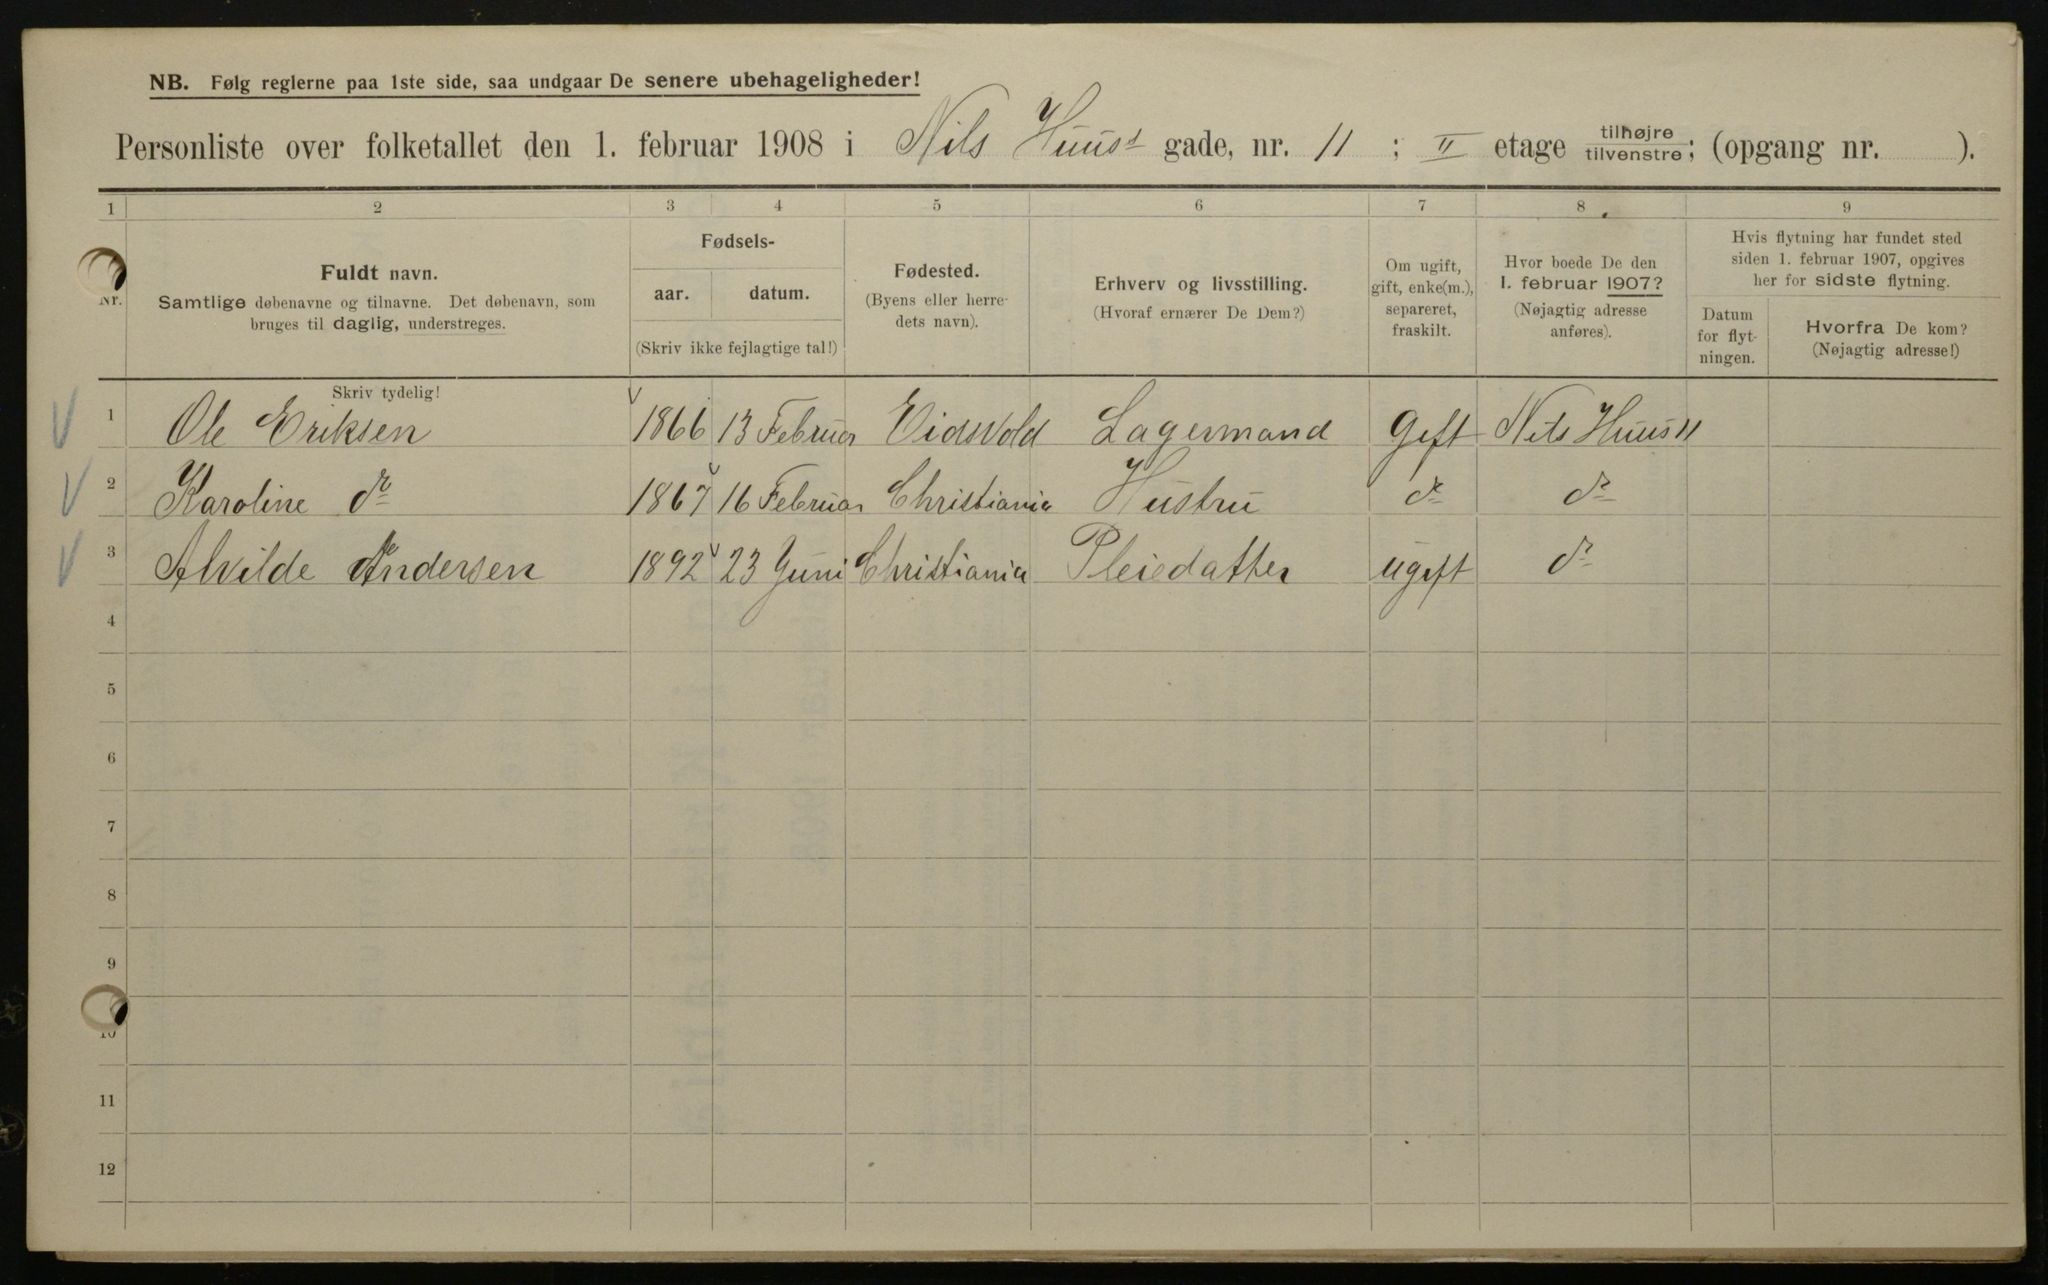 NB. Følg reglerne paa 1ste side, saa undgaar De senere ubehageligheder!
Personliste over folketallet den 1. februar 1908 i Nils Huus's gade, nr. 11 ; II etage tilhøjre/tilvenstre; (opgang nr. ).
1 2 3 4 5 6 7 8 9
Nr.
Fuldt navn.
Samtlige døbenavne og tilnavne. Det døbenavn, som
bruges til daglig, understreges.
Skriv tydelig!
Fødsels-
aar. datum.
(Skriv ikke fejlagtige tal!)
Fødested.
(Byens eller herre-
dets navn).
Erhverv og livsstilling.
(Hvoraf ernærer De Dem?)
Om ugift,
gift, enke(m.),
separeret,
fraskilt.
Hvor boede De den
1. februar 1907?
(Nøjagtig adresse
anføres).
Hvis flytning har fundet sted
siden 1. februar 1907, opgives
her for sidste flytning.
Datum
for flyt-
ningen.
Hvorfra De kom?
(Nøjagtig adresse!)
1 Ole Eriksen 1866 13 Februar Eidsvold Lagermand Gift Nils Huus 11
2 Karoline do 1867 16 Februar Christiania Hustru do do
3 Alvilde Andersen 1892 23 Juni Christiania Pleiedatter ugift do
4
5
6
7
8
9
10
11
12